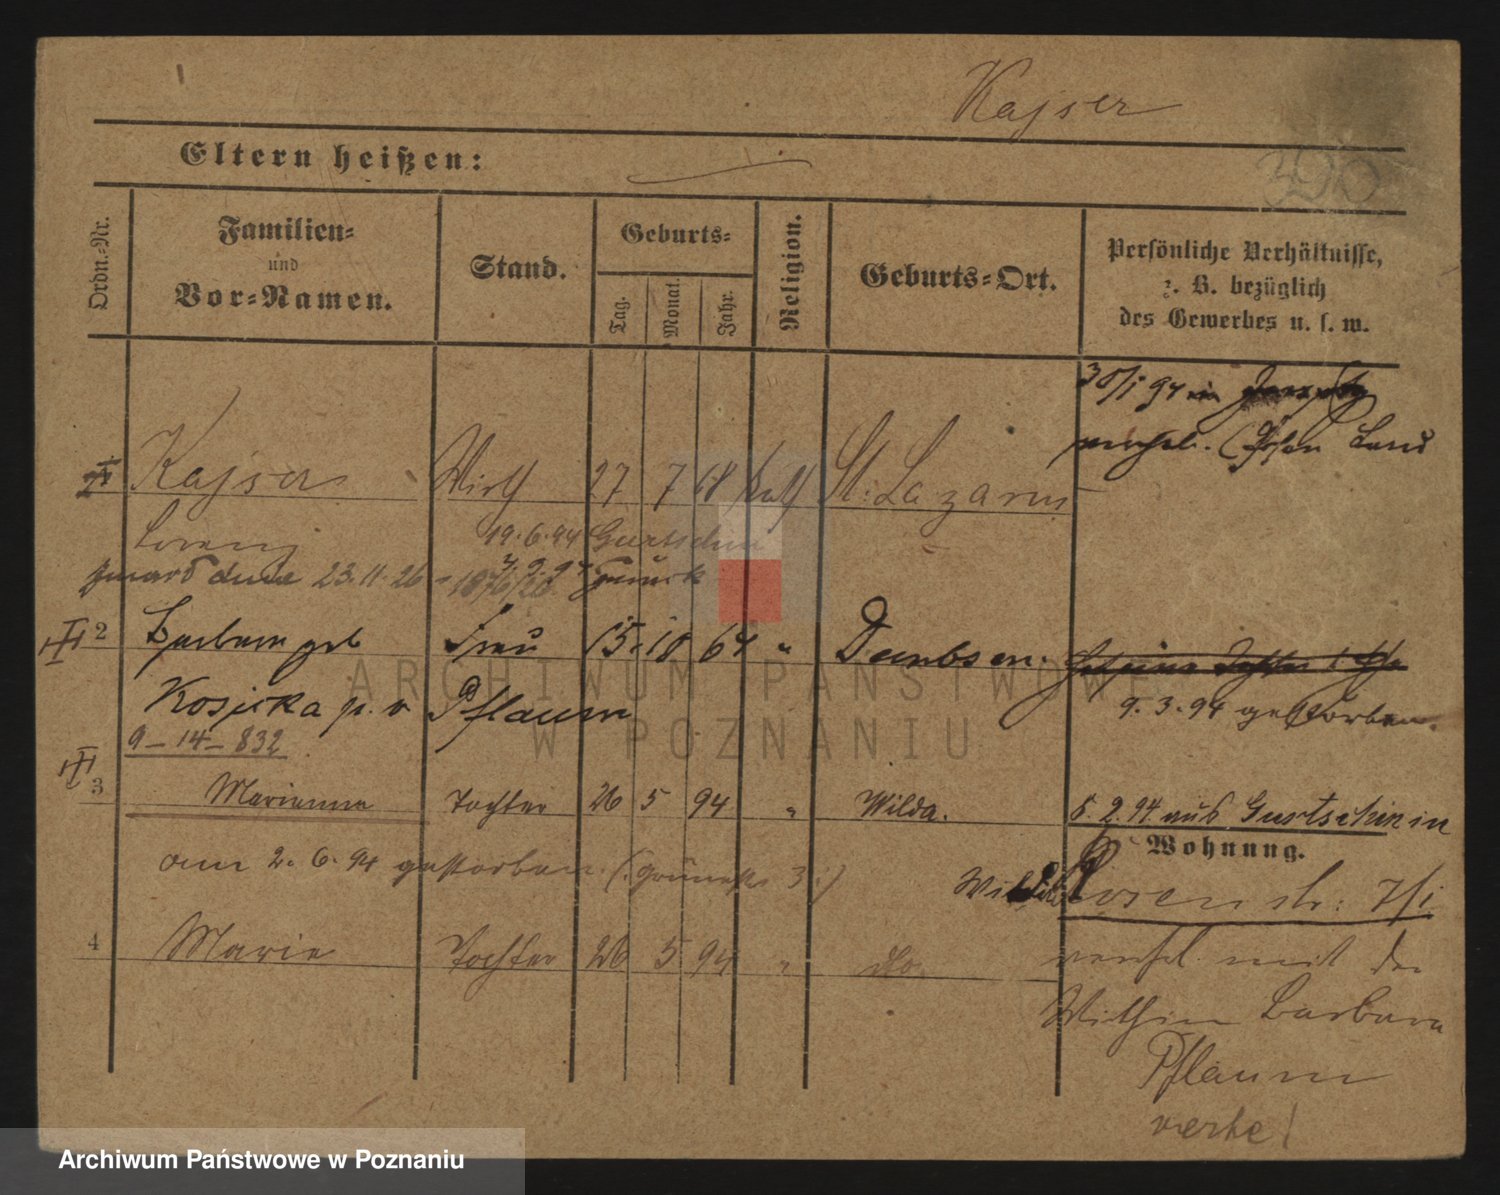 Kajser
Eltern heißen:
Ordn.-Nr.
Familien-
und
Vor-Namen.
Stand.
Geburts-
Tag.
Monat.
Jahr.
Religion.
Geburts-Ort.
Persönliche Verhältnisse,
z. B. bezüglich
des Gewerbes u. s. w.
30/1 94 in
verhel. (Posen Land
Kajser Wirth 27 7 68 kath St: Lazarus
Lorenz 19.6.94 Gurtschin
23.11.26
2 Barbara geb Frau 15. 10 64 " Dembsen.
Kosicka p. v Pflaum
9. 3. 94 gestorben.
9-14-832
3 Marianna Tochter 26 5 94 " Wilda.
8. 2. 94. aus Gurtschin in
am 2. 6. 94 gestorben
Wohnung.
Rosenstr: 7/I
4 Marie Tochter 26 5 94 " do.
verhel mit der
Wittwe Barbara
Pflaum
ARCHIWUM PAŃSTWOWE
W POZNANIU
Archiwum Państwowe w Poznaniu